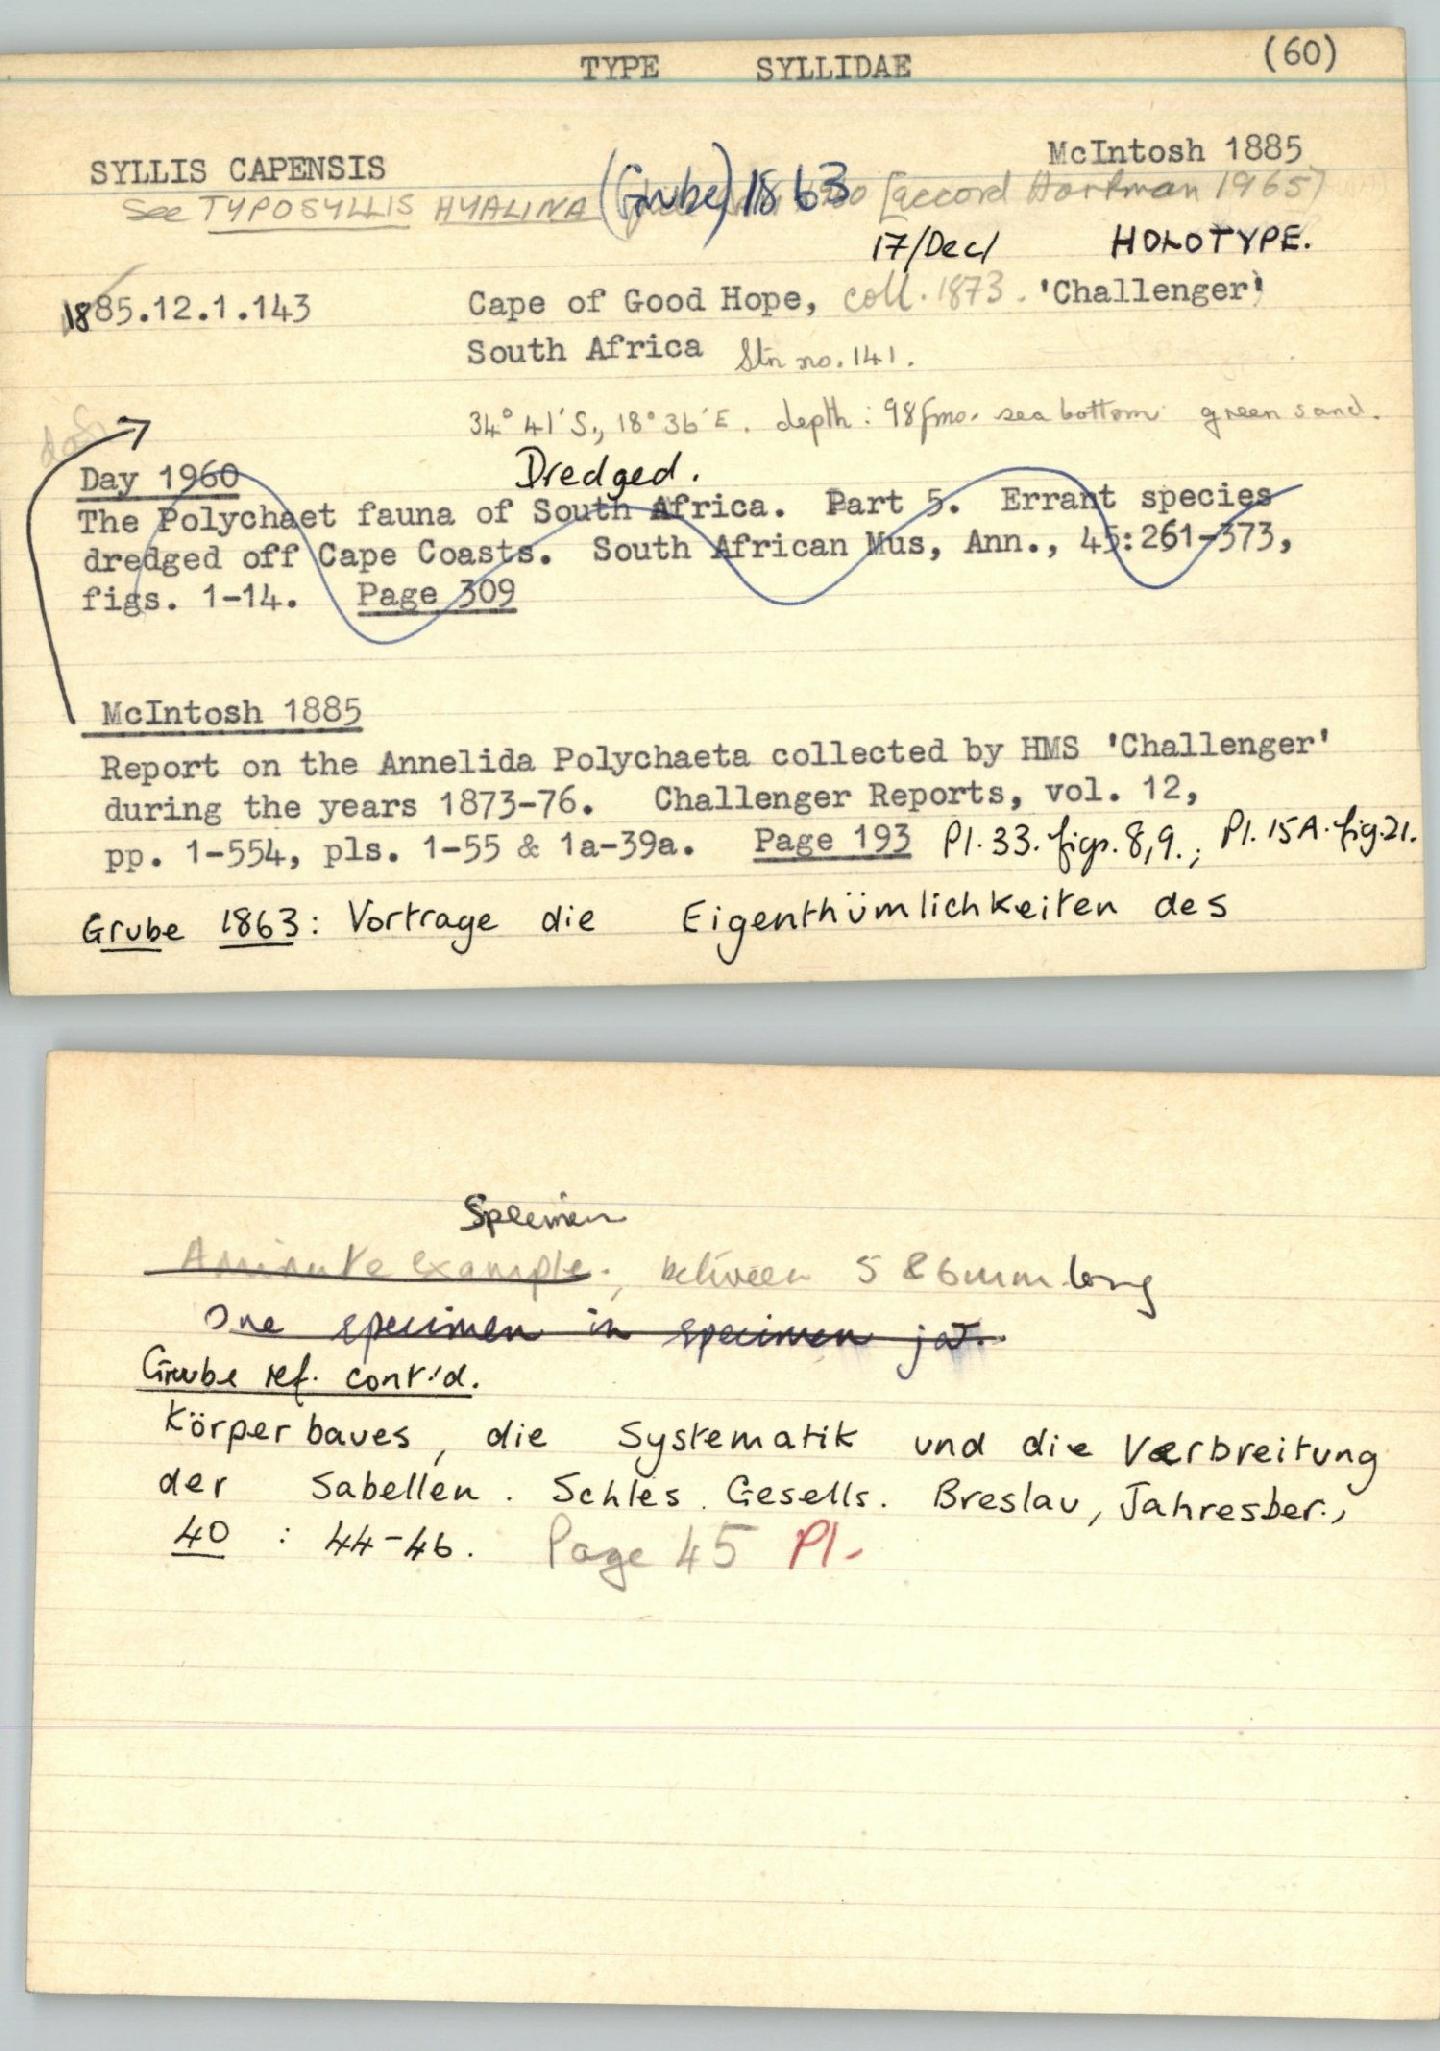 TYPE SYLLIDAE (60)
SYLLIS CAPENSIS McIntosh 1885
See TYPOSYLLIS HYALINA (Grube) 1863 [accord Hartman 1965]
17/Dec/ HOLOTYPE.
1885.12.1.143 Cape of Good Hope, coll. 1873. 'Challenger'
South Africa Stn no. 141.
34° 41' S., 18° 36' E. depth: 98fms. sea bottom green sand.
Day 1960 Dredged.
The Polychaet fauna of South Africa. Part 5. Errant species
dredged off Cape Coasts. South African Mus, Ann., 45:261-373,
figs. 1-14. Page 309
McIntosh 1885
Report on the Annelida Polychaeta collected by HMS 'Challenger'
during the years 1873-76. Challenger Reports, vol. 12,
pp. 1-554, pls. 1-55 & 1a-39a. Page 193 Pl. 33. figs. 8,9.; Pl. 15A. fig. 21.
Grube 1863: Vortrage die Eigenthümlichkeiten des
Specimen
A minute example., between 5 & 6mm long
One specimen in specimen jar.
Grube ref. cont'd.
Körperbaues, die Systematik und die Verbreitung
der Sabellen. Schles. Gesells. Breslau, Jahresber.,
40 : 44-46. Page 45 Pl.